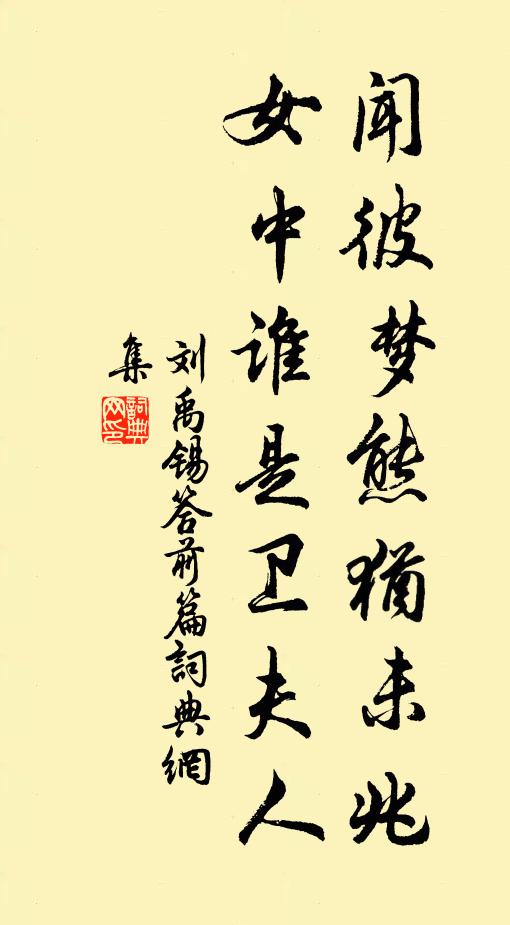 闻彼梦熊犹未兆
女中谁是卫夫人
刘禹锡答前篇詞典網
集
詞典网印